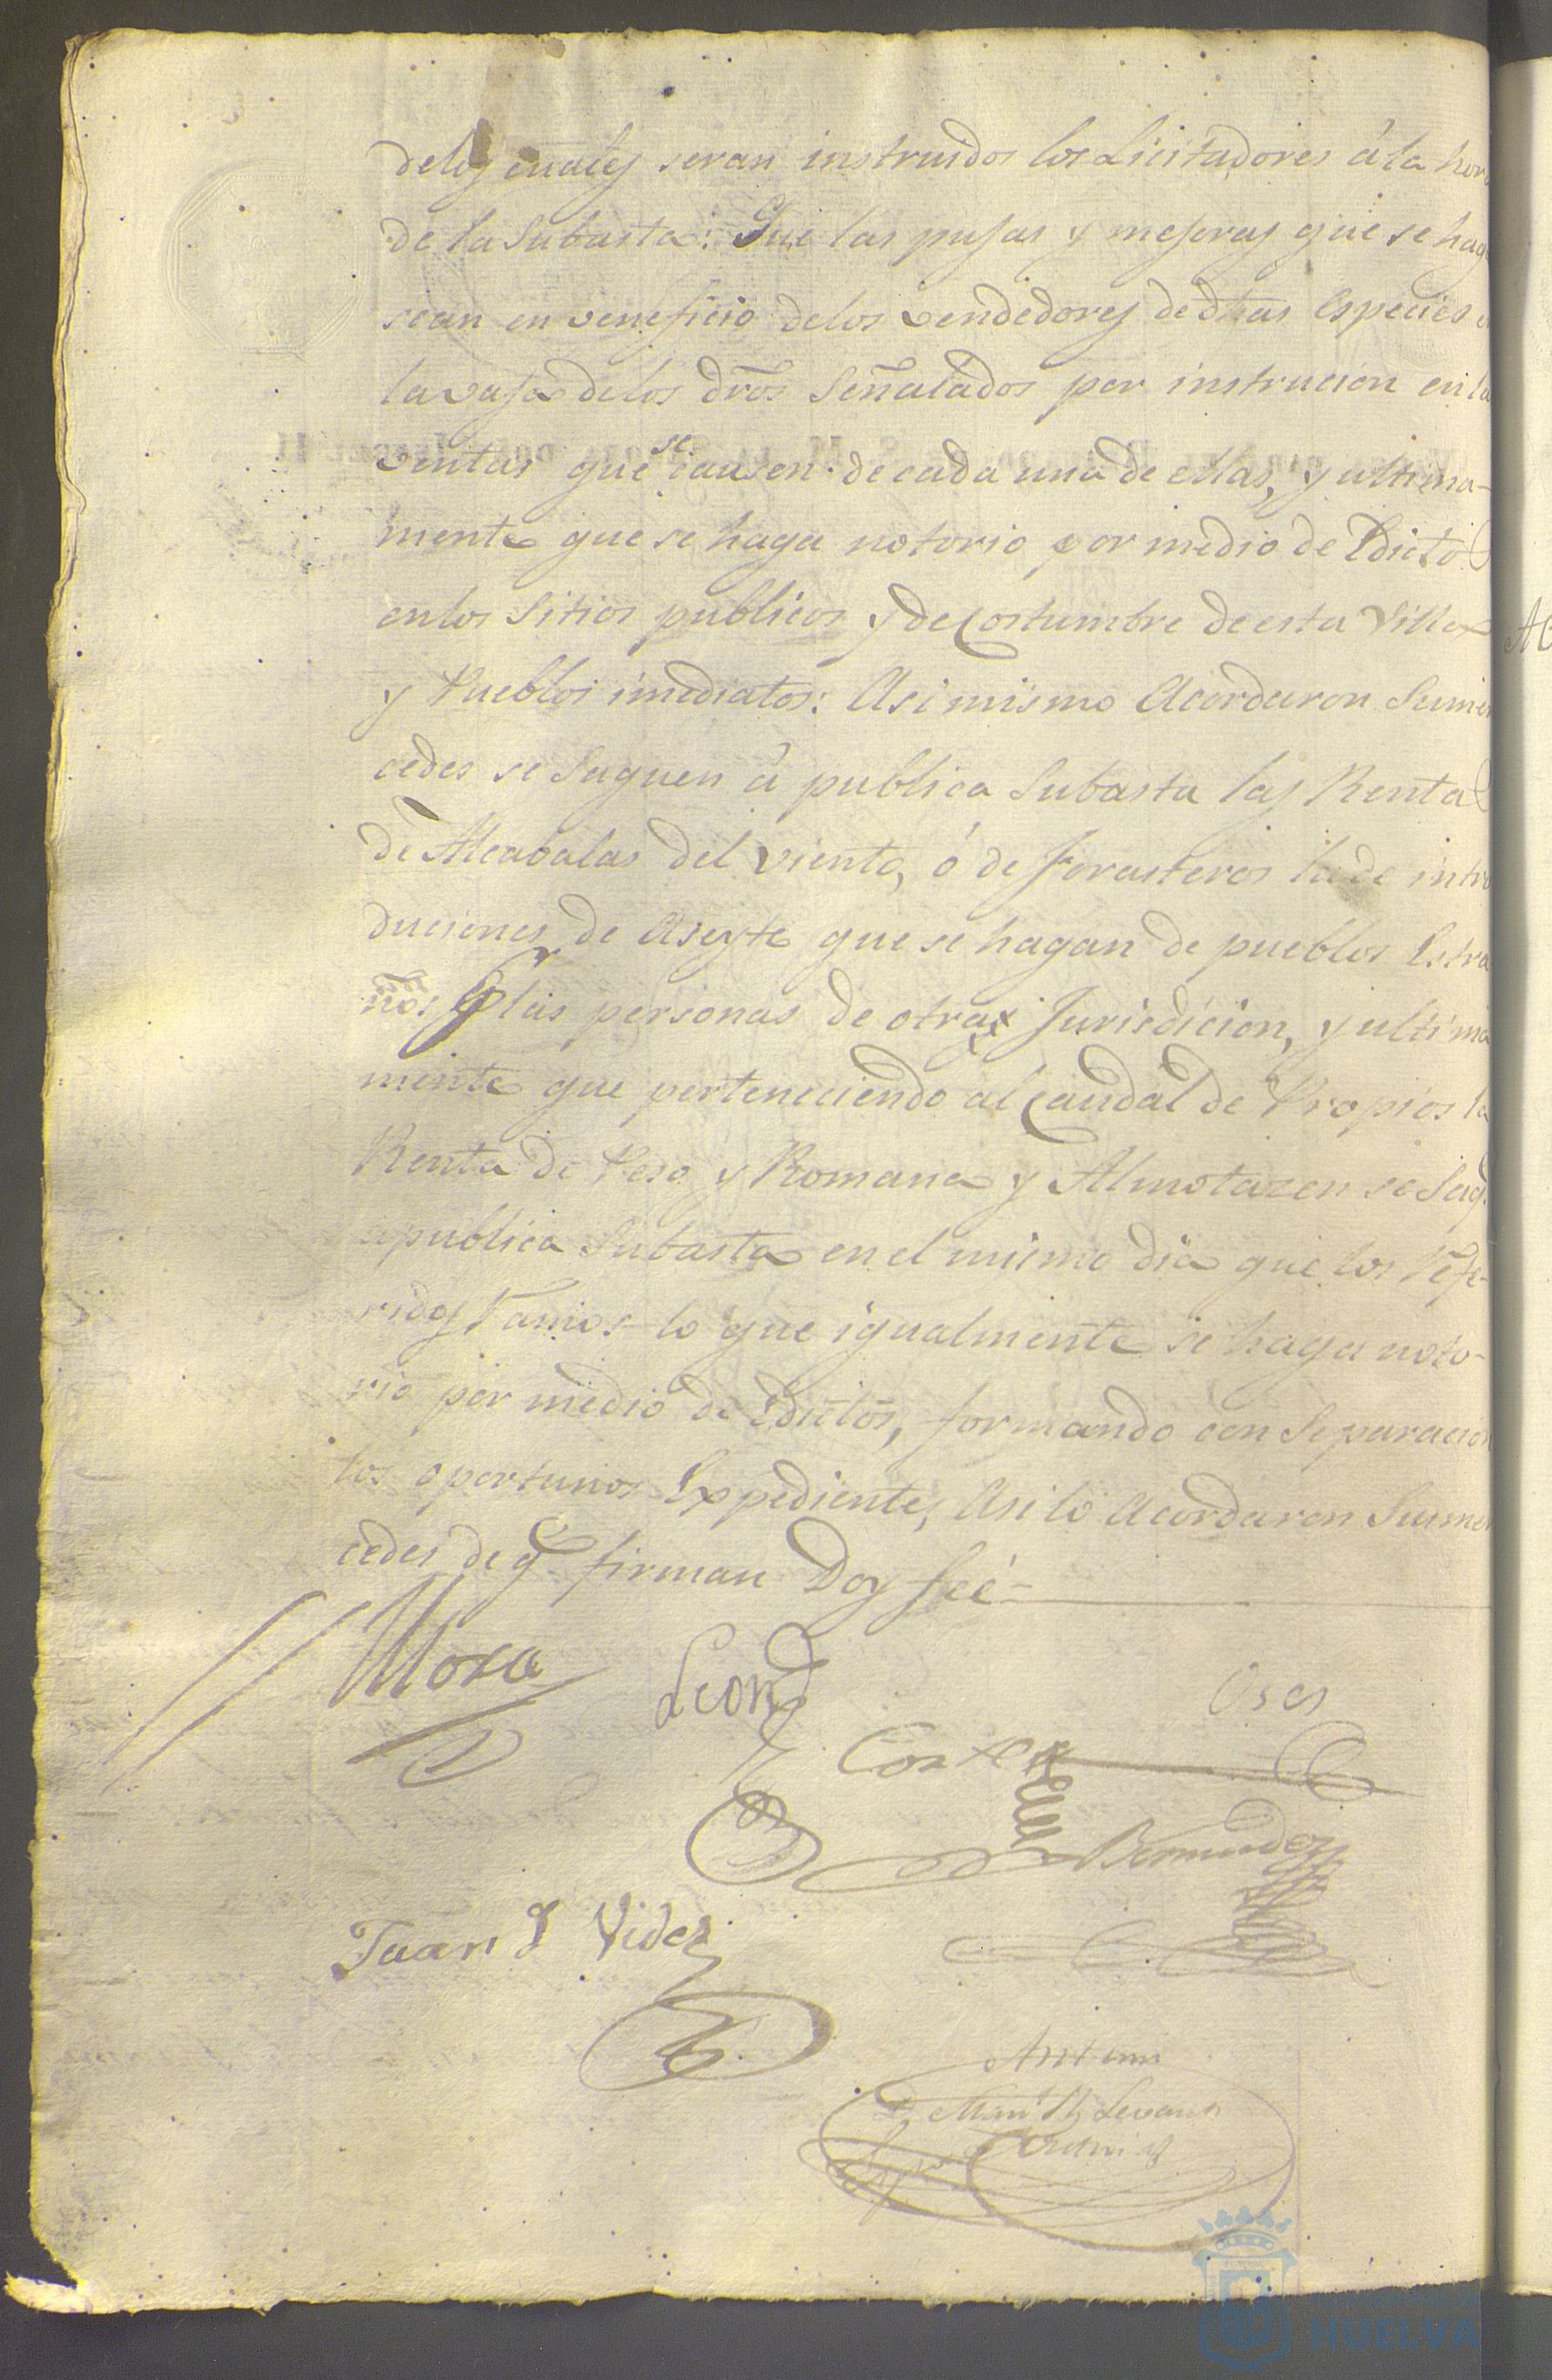 delos cuales seran instruidos los Licitadores á la hora
de la Subasta: Que las pujas y mejoras que se hag
sean en veneficio delos vendedores de dhas especies
la vaja delos dros Señalados por instrucion en la
ventas que se causen de cada una de ellas, y ultima-
mente que se haga notorio por medio de Edictos
en los Sitios publicos y de Costumbre de esta Villa
y Pueblos imediatos: Asi mismo Acordaron Sumer
cedes se saquen á publica Subasta las Rentas
de Alcabalas del viento, ó de forasteros la de intro
duciones de Aseyte que se hagan de pueblos Estra
ños las personas de otra Jurisdicion, y ultima
mente que perteneciendo al Caudal de Propios la
Renta de Peso y Romana y Almotazen se Saq
a publica Subasta en el mismo dia que los refe-
ridos ramos lo que igualmente se haga noto-
rio por medio de Edictos, formando con Separacion
los oportunos Expedientes, Asi lo Acordaron Sumer
cedes de q.e firman Doy fée-
Mora
Leon
Oses
Cortes
Bermudez
Juan J Vides
Ante mi
Man.l
HUELVA